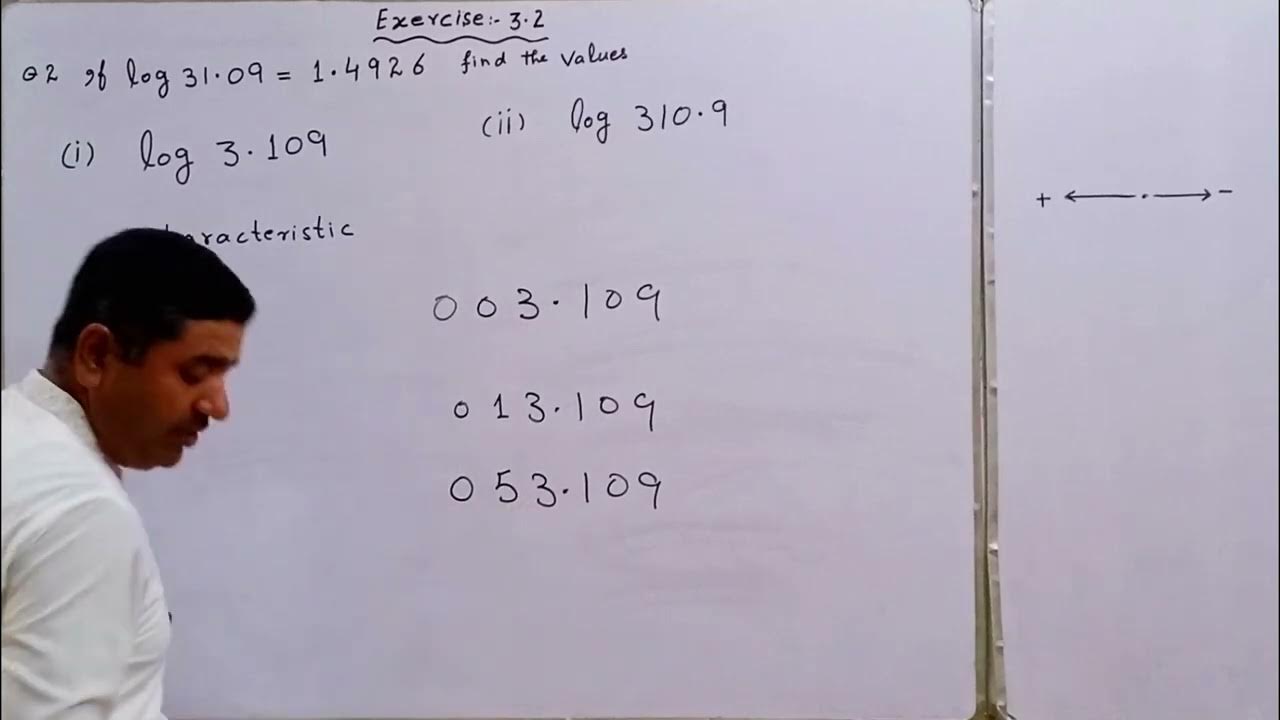 Exercise:- 3.2
Q2 If log 31.09 = 1.4926 find the values
(i) log 3.109
(ii) log 310.9
+ -
aracteristic
003.109
013.109
053.109